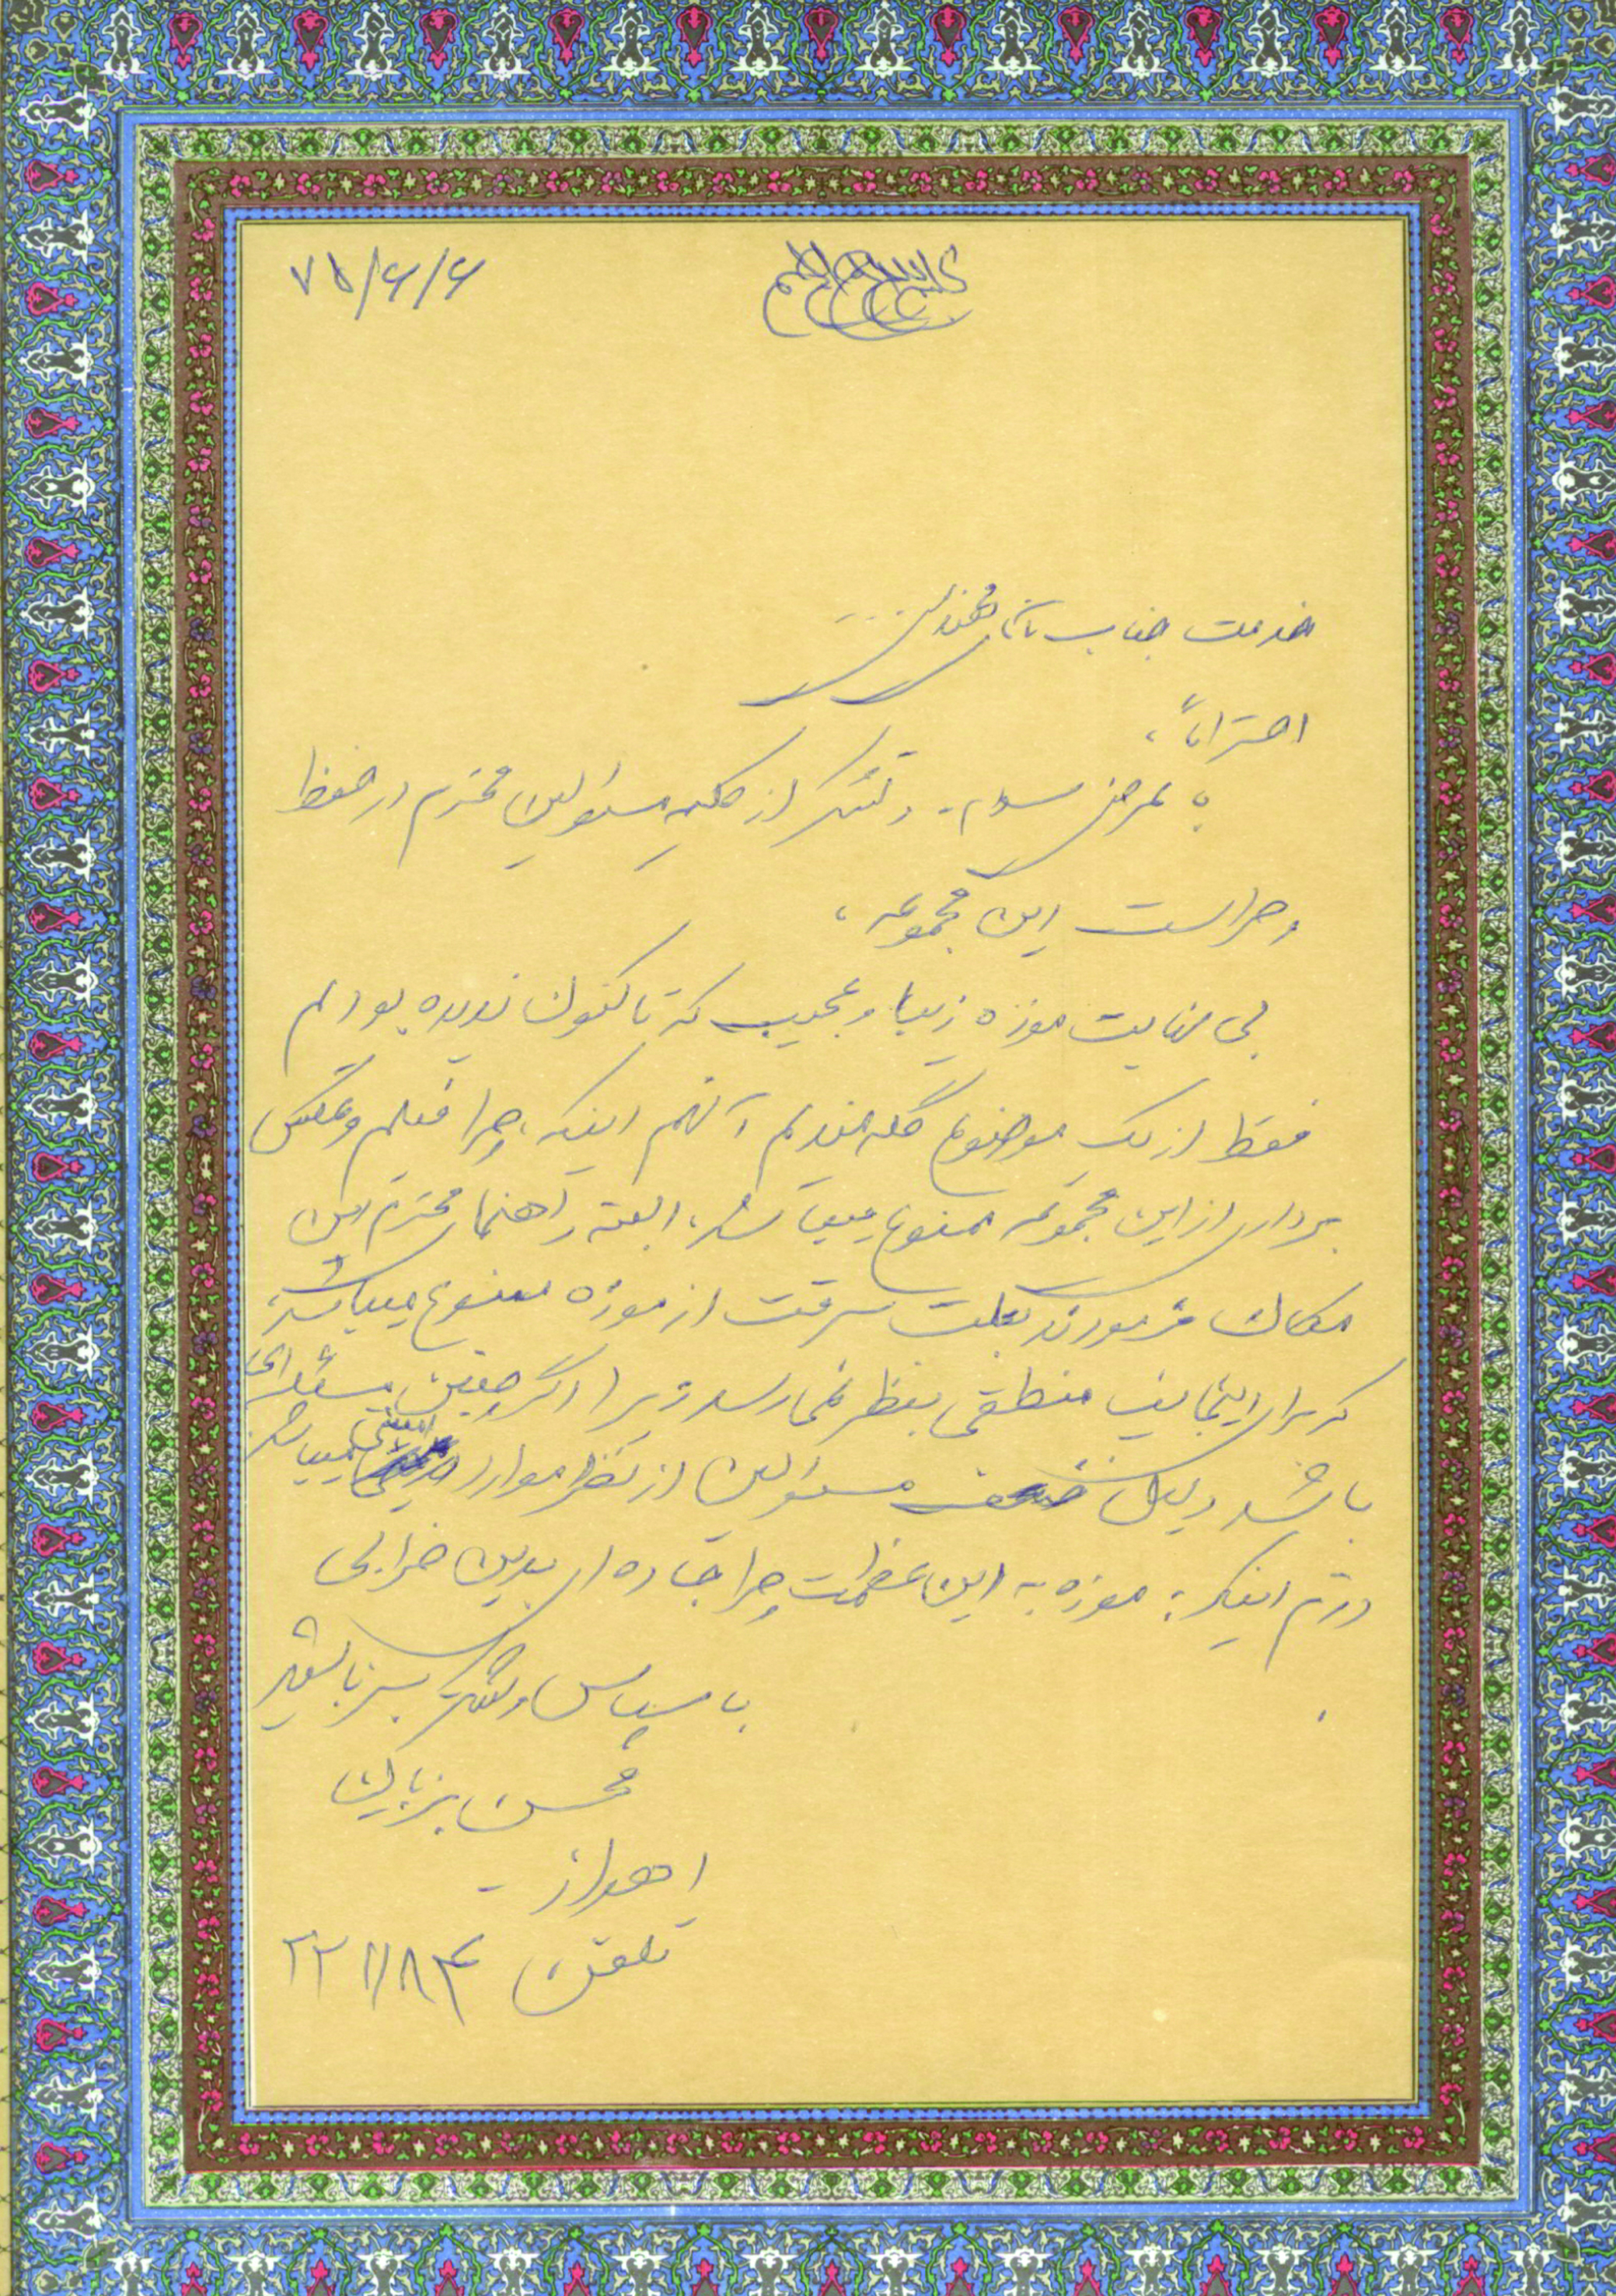 بسم الله الرحمن الرحیم
۷۵/۶/۶
خدمت جناب آقای مهندس
احتراماً،
با عرض سلام و تشکر از کلیه مسئولین محترم در حفظ
و حراست این مجموعه،
بی نهایت موزه زیبا و عجیب که تا کنون ندیده بودم
فقط از یک موضوع گله مندیم آنهم اینکه، چرا فیلم و عکس
برداری از این مجموعه ممنوع میباشد، البته راهنمای محترم این
مکان فرمودند بعلت سرقت از موزه ممنوع میباشد،
که برای اینجانب منطقی بنظر نمی‌رسد زیرا اگر چنین مسئله‌ای
باشد دلیل ضعف مسئولین از نظر موارد امنیتی میباشد
دوم اینکه: موزه به این عظمت چرا جاده ای بدین خرابی
با سپاس و تشکر
محسن
اهواز -
تلفن ۲۲۱۸۸۳